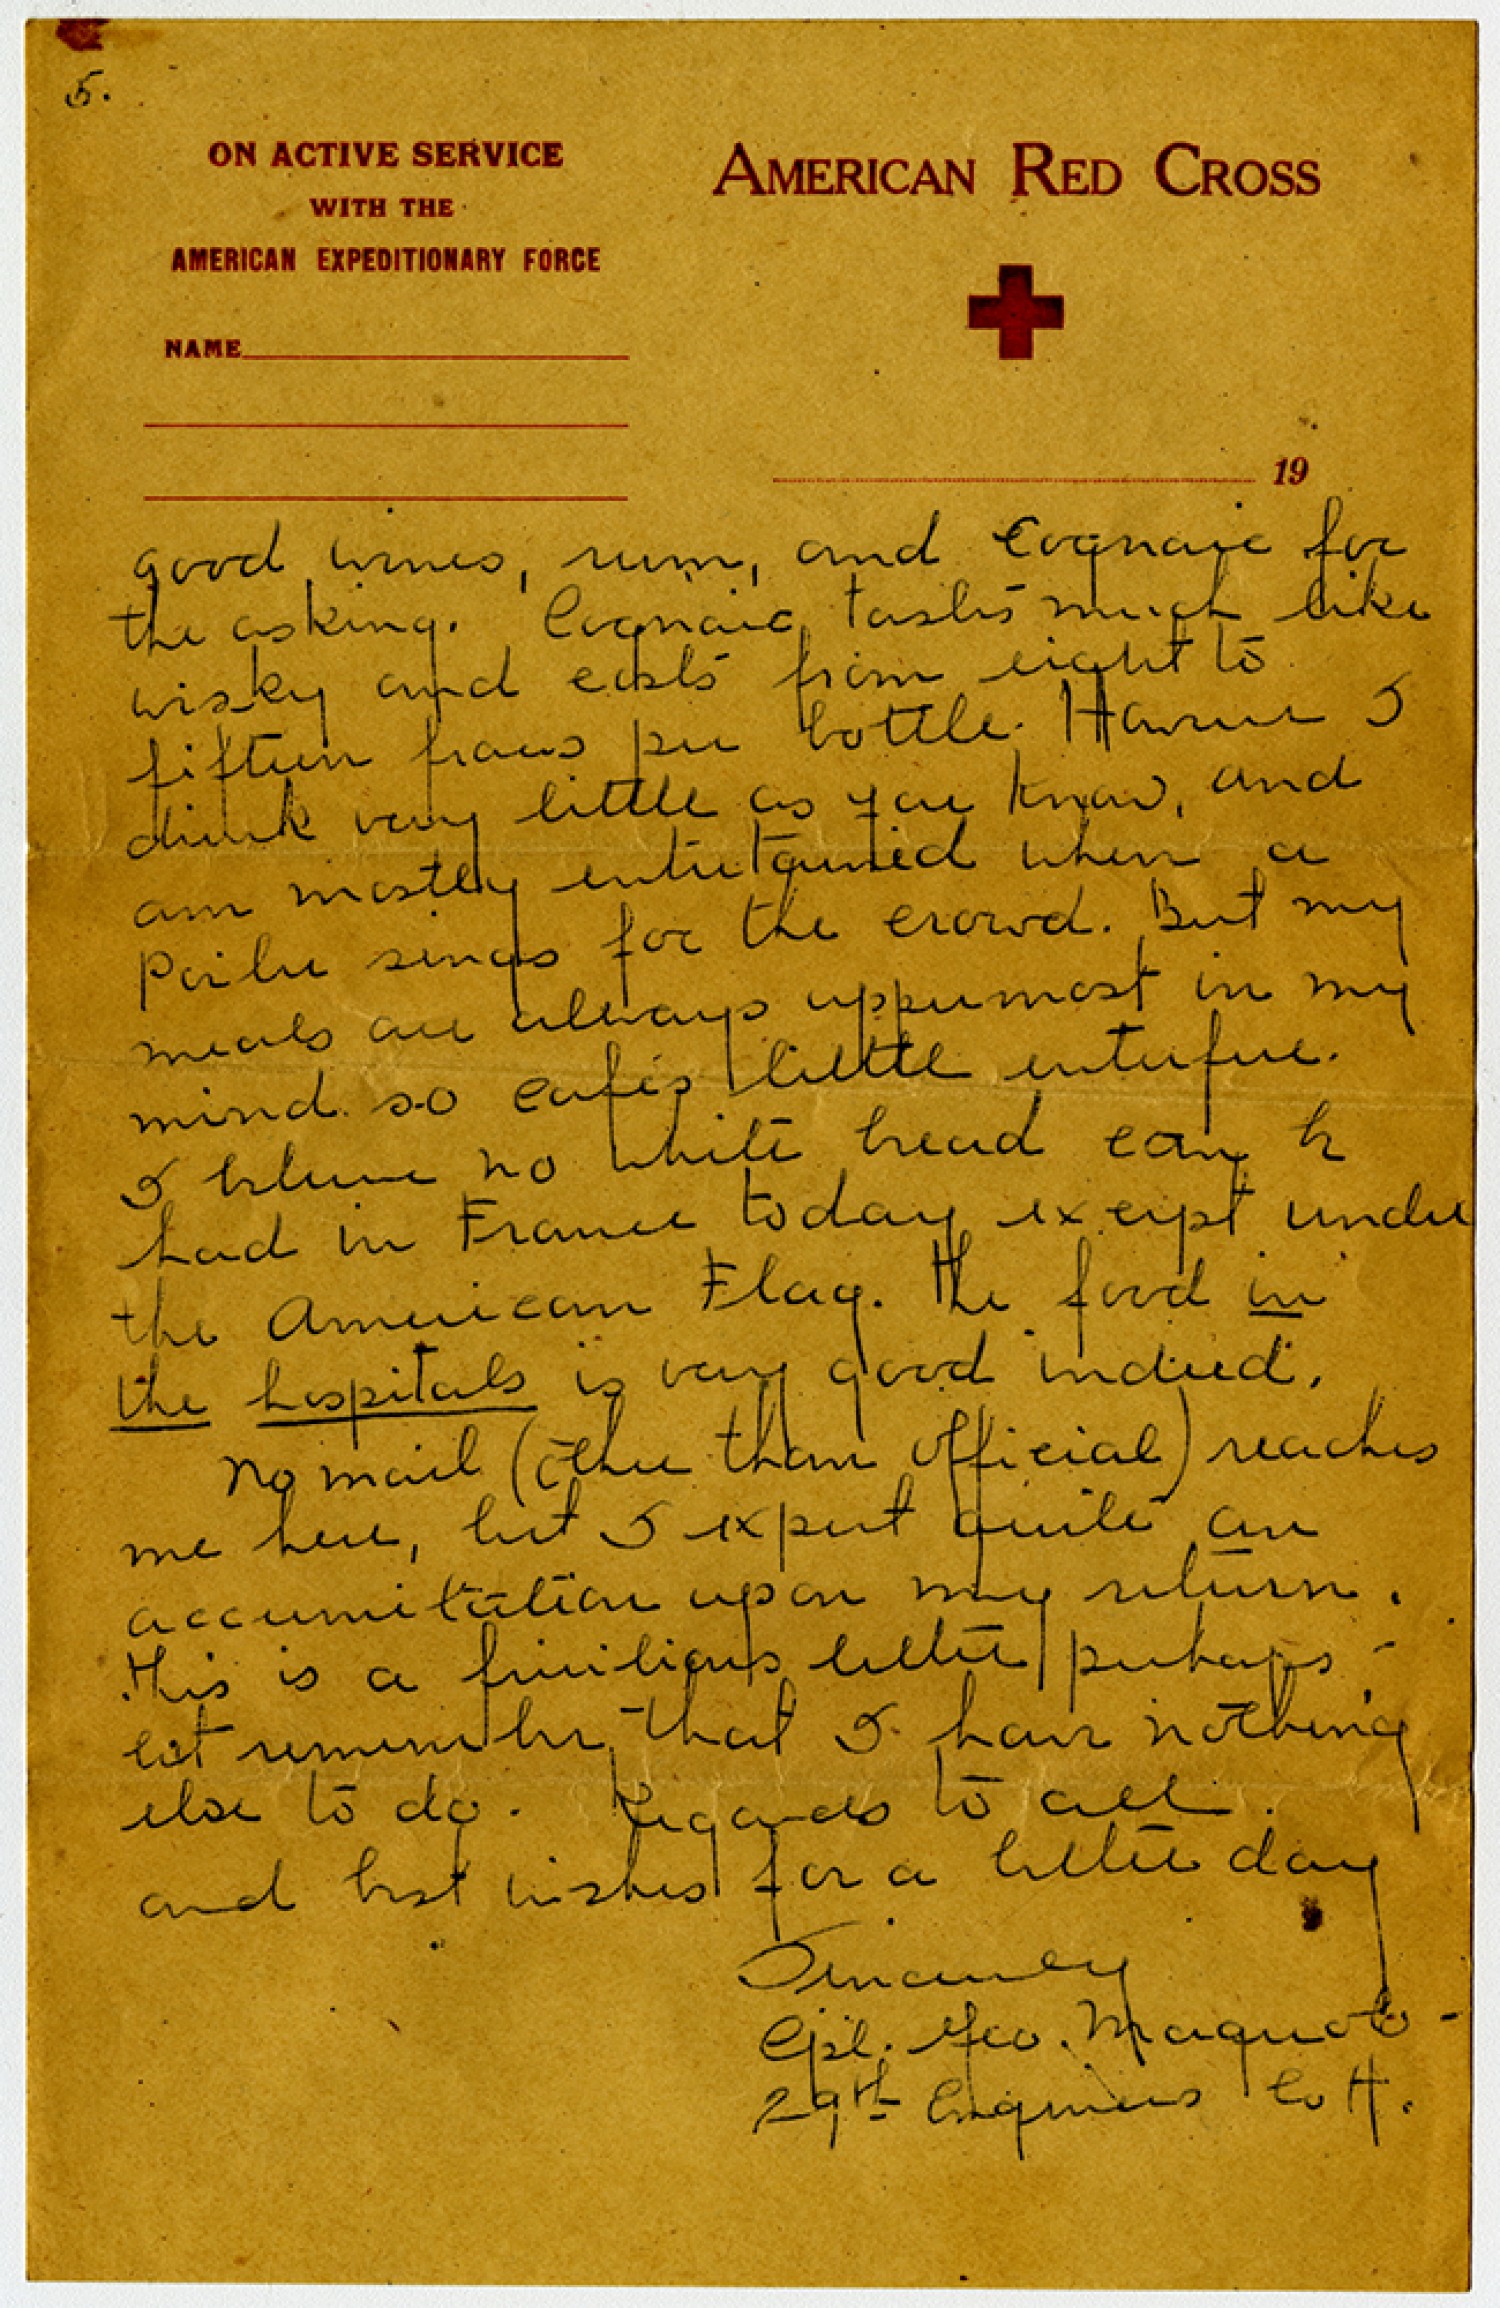 5.
ON ACTIVE SERVICE
WITH THE
AMERICAN EXPEDITIONARY FORCE
NAME
AMERICAN RED CROSS
19
good wines, rum, and Cognaic for
the asking. Cognaic tastes much like
wisky and costs from eight to
fifteen francs per bottle. However I
drink very little as you know, and
am mostly entertained when a
Poilu sings for the crowd. But my
meals are always uppermost in my
mind so cafés little enterfere.
I believe no white bread can be
had in France today except under
the American Flag. The food in
the hospitals is very good indeed.
No mail (other than official) reaches
me here, but I expect quite an
accumitation upon my return.
This is a letter perhaps -
but remember that I have nothing
else to do. Regards to all.
and best wishes for a better day
Sincerely
Cpl. Geo.
29th Engineers Co H.